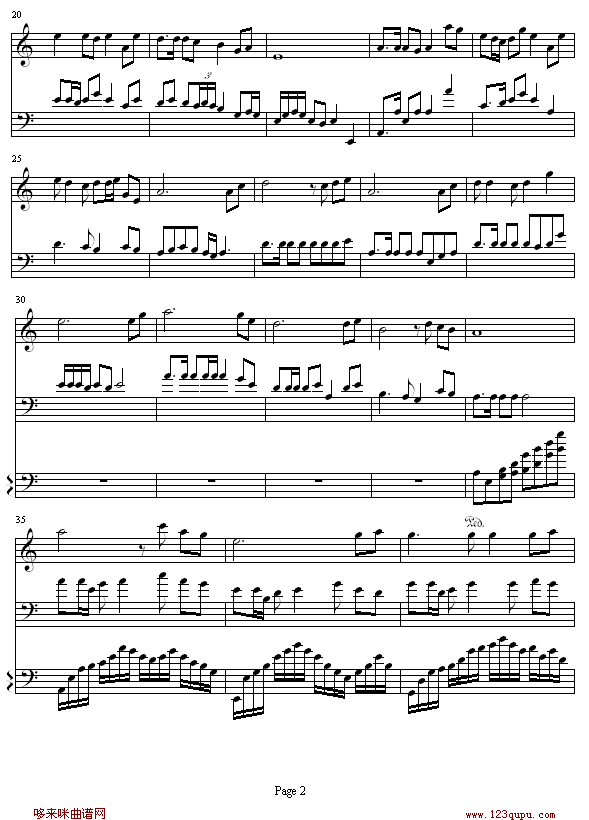 20
3
25
30
35
Ped.
Page 2
哆来咪曲谱网
www.123qupu.com